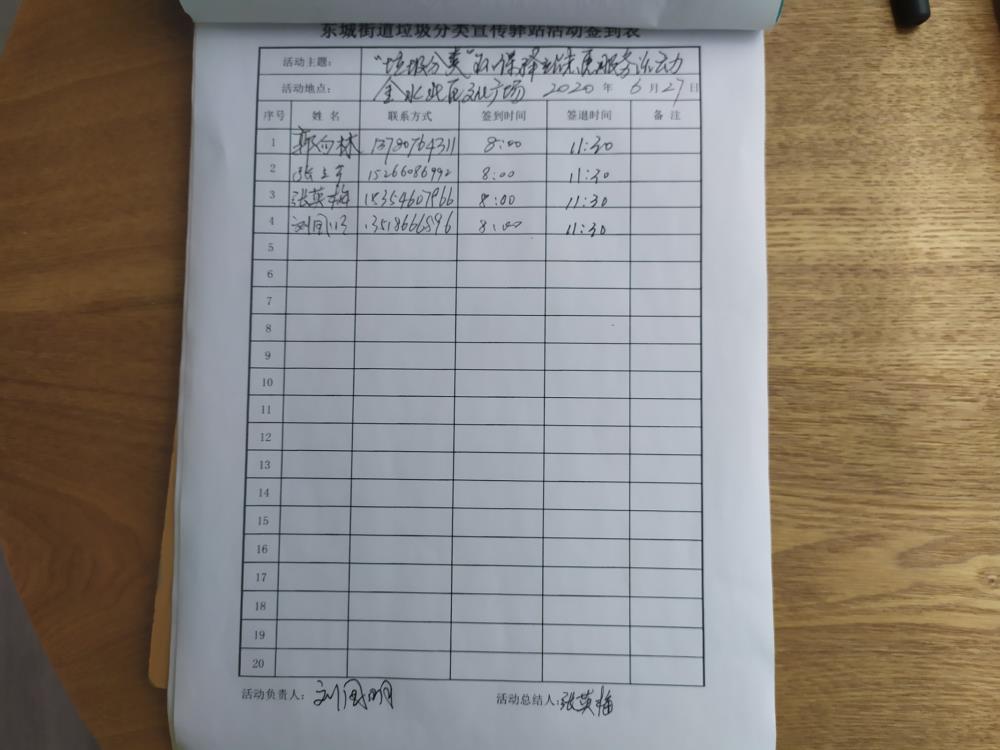 东城街道垃圾分类宣传驿站活动签到表
活动主题： "垃圾分类" 环保驿站 服务活动
活动地点： 金水 文化广场 2020 年 6 月 27 日
序号 姓名 联系方式 签到时间 签退时间 备注
1 郭向林 13780764311 8:00 11:30
2 张 15266086992 8:00 11:30
3 张英梅 18354607966 8:00 11:30
4 刘 13518666896 8:00 11:30
5
6
7
8
9
10
11
12
13
14
15
16
17
18
19
20
活动负责人： 刘 明 活动总结人：张英梅